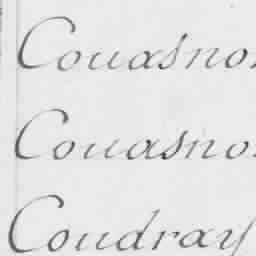 Couasno
Couasno
Coudray